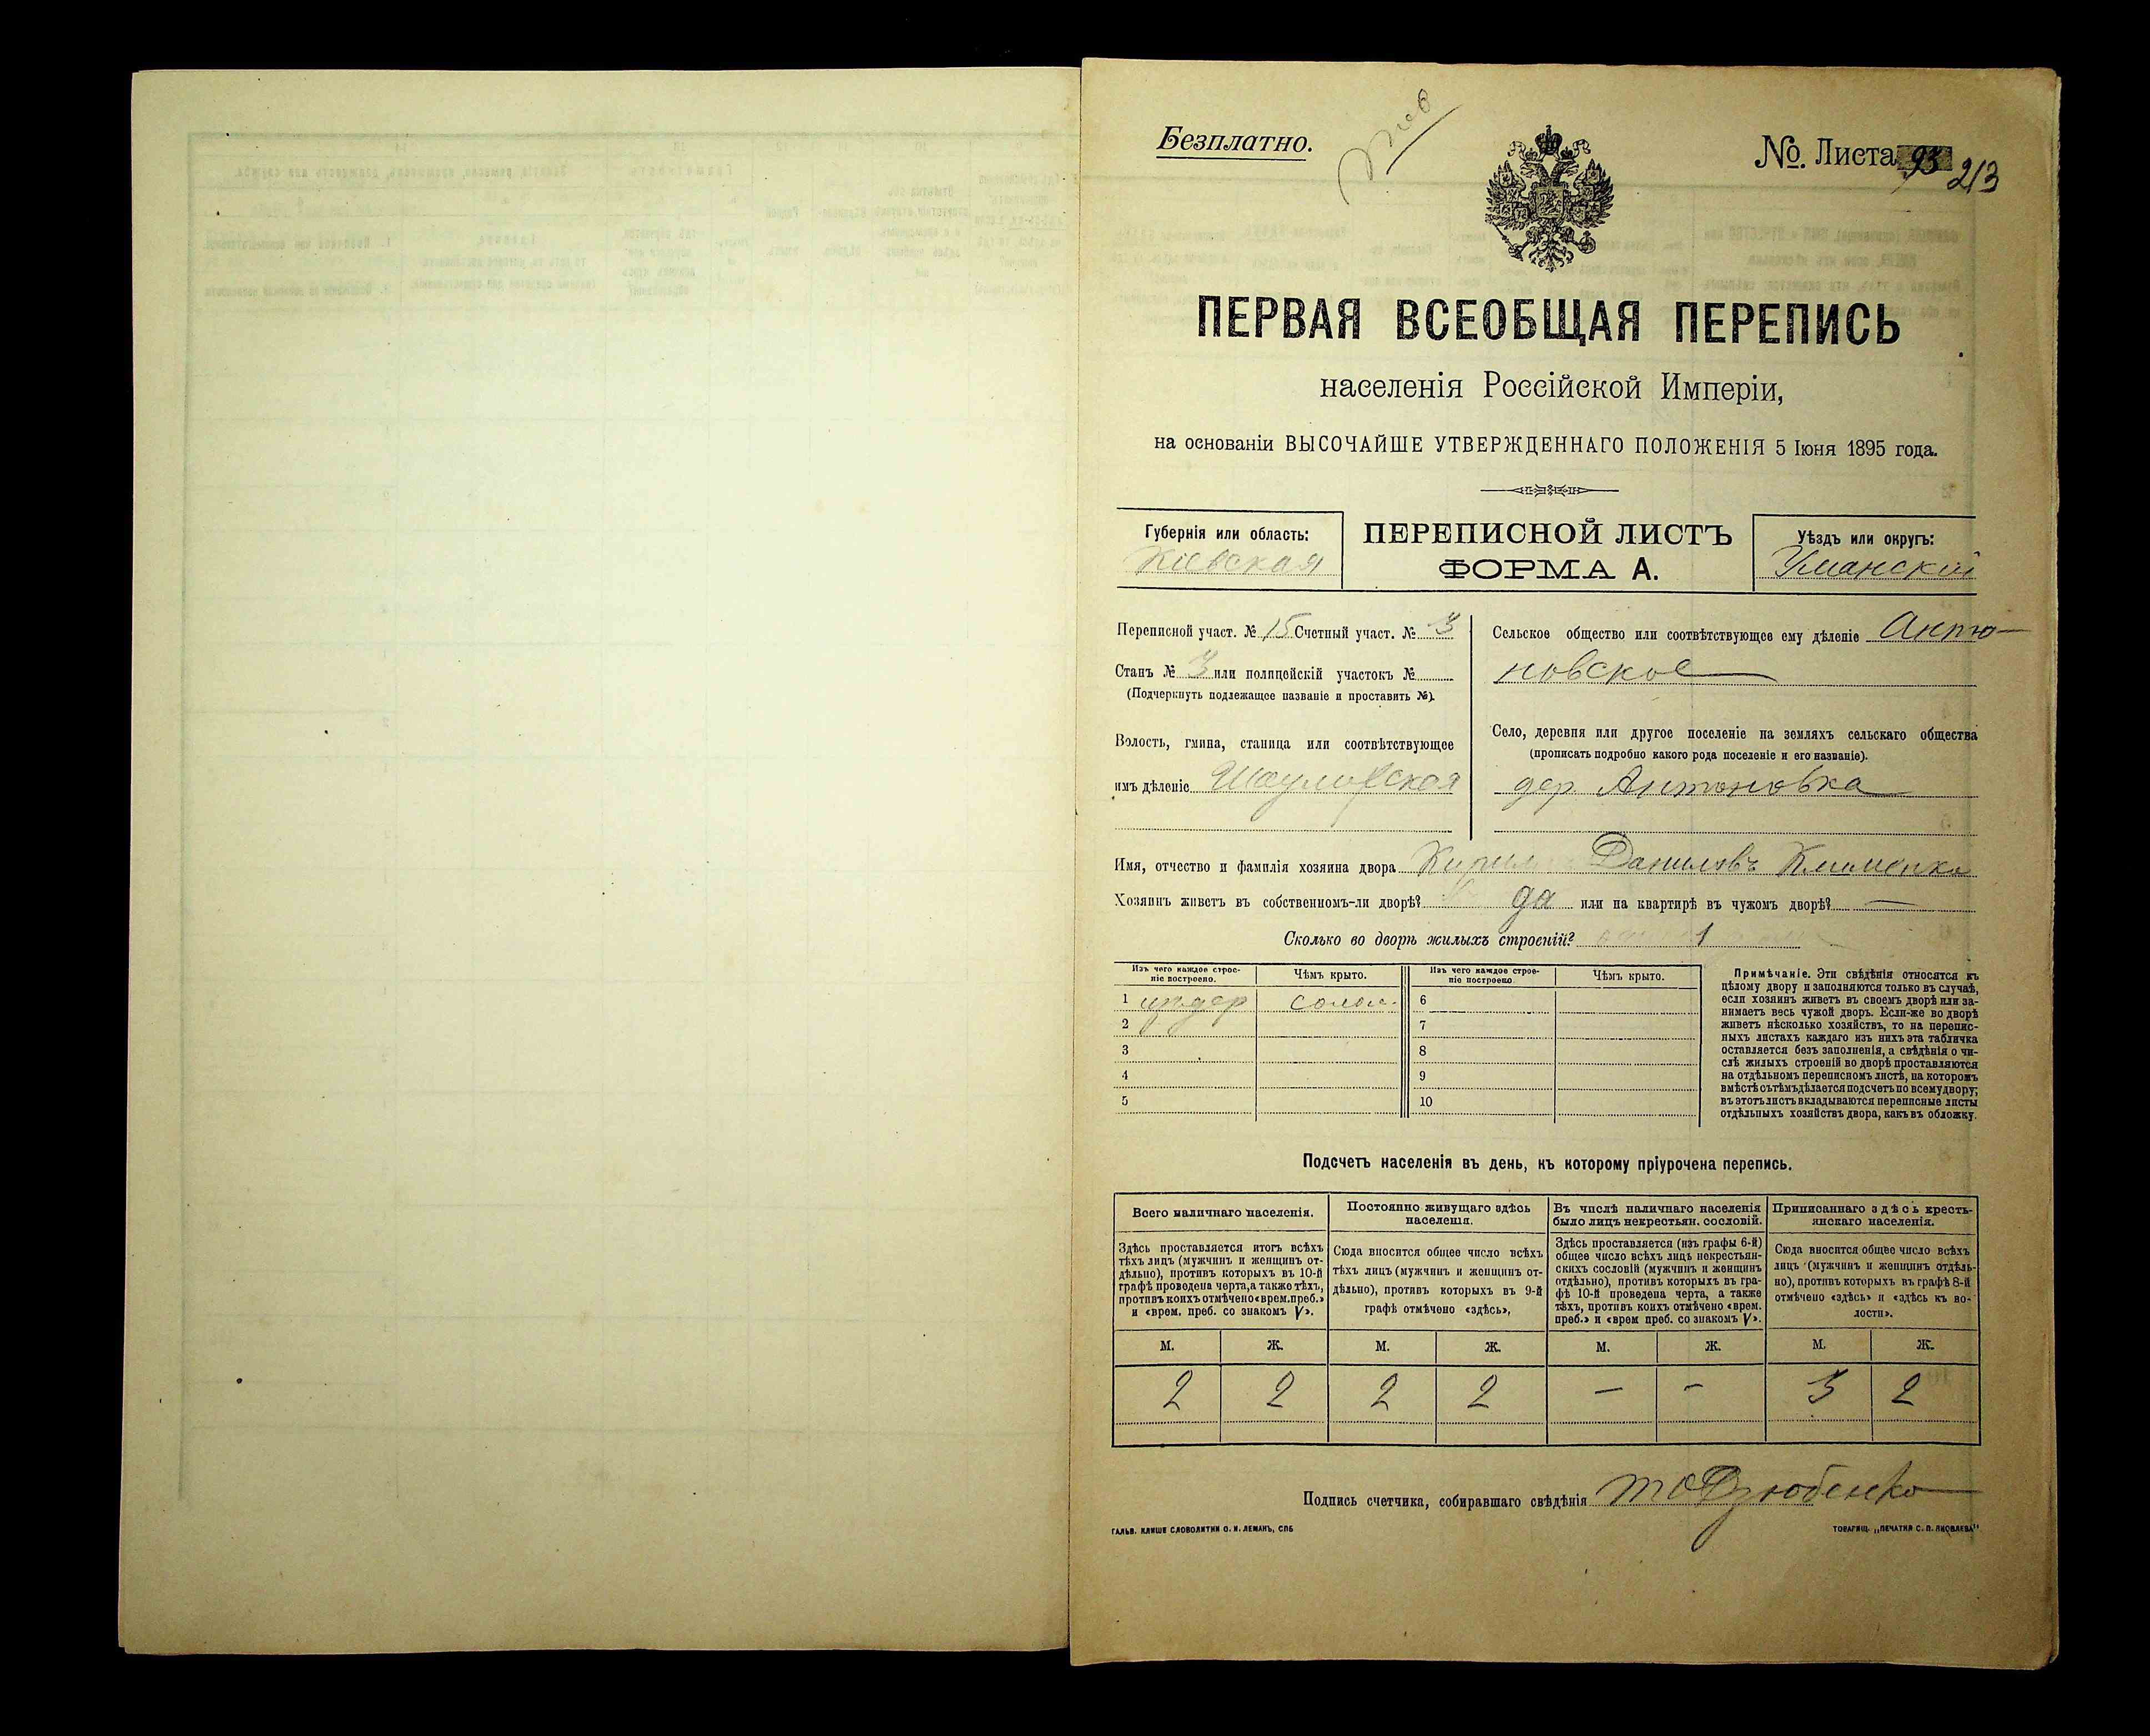 Безплатно.
№. Листа 93 213
ПЕРВАЯ ВСЕОБЩАЯ ПЕРЕПИСЬ
населенія Россійской Имперіи,
на основаніи ВЫСОЧАЙШЕ УТВЕРЖДЕННАГО ПОЛОЖЕНІЯ 5 Іюня 1895 года.
Губернія или область:
Кіевская
ПЕРЕПИСНОЙ ЛИСТЪ
ФОРМА А.
Уѣздъ или округъ:
Уманскій
Переписной участ. № 15 Счетный участ. № 3
Станъ № 3 или полицейскій участокъ №
(Подчеркнуть подлежащее названіе и проставить №).
Волость, гмина, станица или соотвѣтствующее
имъ дѣленіе
Сельское общество или соотвѣтствующее ему дѣленіе Анто-
новское
Село, деревня или другое поселеніе на земляхъ сельскаго общества
(прописать подробно какого рода поселеніе и его названіе).
дер. Антоновка
Имя, отчество и фамилія хозяина двора Кирил Даниловъ Клименко
Хозяинъ живетъ въ собственномъ-ли дворѣ? да или на квартирѣ въ чужомъ дворѣ? —
Сколько во дворѣ жилыхъ строеній? 1
Изъ чего каждое строе-
ніе построено.
Чѣмъ крыто.
Изъ чего каждое строе-
ніе построено.
Чѣмъ крыто.
1 солом. 6
2 7
3 8
4 9
5 10
Примѣчаніе. Эти свѣдѣнія относятся къ
цѣлому двору и заполняются только въ случаѣ,
если хозяинъ живетъ въ своемъ дворѣ или за-
нимаетъ весь чужой дворъ. Если-же во дворѣ
живетъ нѣсколько хозяйствъ, то на перепис-
ныхъ листахъ каждаго изъ нихъ эта табличка
оставляется безъ заполненія, а свѣдѣнія о чи-
слѣ жилыхъ строеній во дворѣ проставляются
на отдѣльномъ переписномъ листѣ, на которомъ
вмѣстѣ съ тѣмъ дѣлается подсчетъ по всему двору;
въ этотъ листъ вкладываются переписные листы
отдѣльныхъ хозяйствъ двора, какъ въ обложку.
Подсчетъ населенія въ день, къ которому пріурочена перепись.
Всего наличнаго населенія.
Здѣсь проставляется итогъ всѣхъ
тѣхъ лицъ (мужчинъ и женщинъ от-
дѣльно), противъ которыхъ въ 10-й
графѣ проведена черта, а также тѣхъ,
противъ коихъ отмѣчено «врем. преб.»
и «врем. преб. со знакомъ V».
Постоянно живущаго здѣсь
населенія.
Сюда вносится общее число всѣхъ
тѣхъ лицъ (мужчинъ и женщинъ от-
дѣльно), противъ которыхъ въ 9-й
графѣ отмѣчено «здѣсь».
Въ числѣ наличнаго населенія
было лицъ некрестьян. сословій.
Здѣсь проставляется (изъ графы 6-й)
общее число всѣхъ лицъ некрестьян-
скихъ сословій (мужчинъ и женщинъ
отдѣльно), противъ которыхъ въ гра-
фѣ 10-й проведена черта, а также
тѣхъ, противъ коихъ отмѣчено «врем.
преб.» и «врем преб. со знакомъ V».
Приписаннаго здѣсь кресть-
янскаго населенія.
Сюда вносится общее число всѣхъ
лицъ (мужчинъ и женщинъ отдѣль-
но), противъ которыхъ въ графѣ 8-й
отмѣчено «здѣсь» и «здѣсь къ во-
лости».
М. Ж. М. Ж. М. Ж. М. Ж.
2 2 2 2 — — 3 2
Подпись счетчика, собиравшаго свѣдѣнія Дзюбенко
ГАЛЬВ. КЛИШЕ СЛОВОЛИТНИ О. И. ЛЕМАНЪ, СПБ
ТОВАРИЩ. „ПЕЧАТНЯ С. П. ЯКОВЛЕВА"